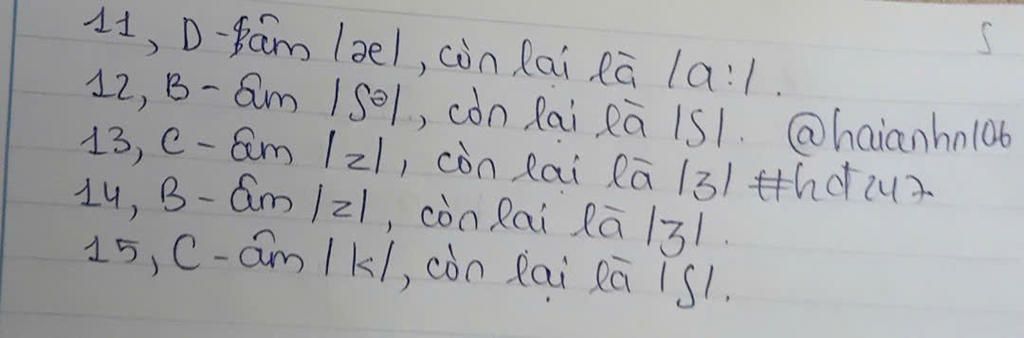 11, D - âm /æ/, còn lại là /a:/.
12, B - âm /ʃə/, còn lại là /ʃ/. @haianhn106
13, C - âm /z/, còn lại là /ʒ/ #hđ247
14, B - âm /z/, còn lại là /ʒ/.
15, C - âm /k/, còn lại là /ʃ/.